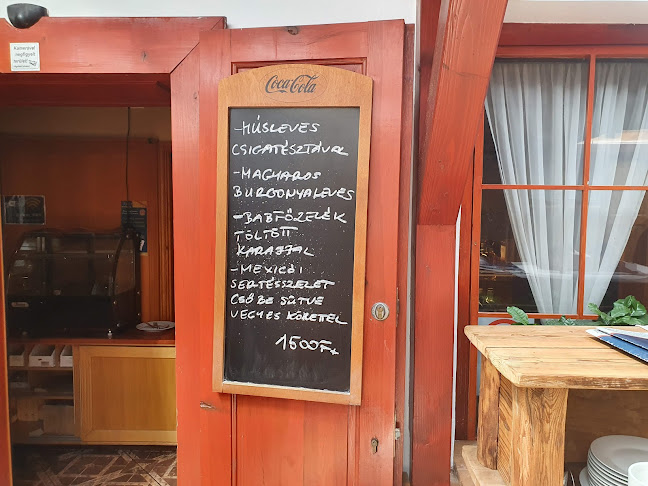 Kamerával
megfigyelt
terület!
Coca-Cola
-HÚSLEVES
CSIGATÉSZTÁVAL
-MAGYAROS
BURGONYALEVES
-BABFŐZELÉK
TÖLTÖTT
KARAJJAL
-MEXICÓI
SERTÉSSZELET
CSŐBE SÜTVE
VEGYES KÖRETTEL
1500Ft